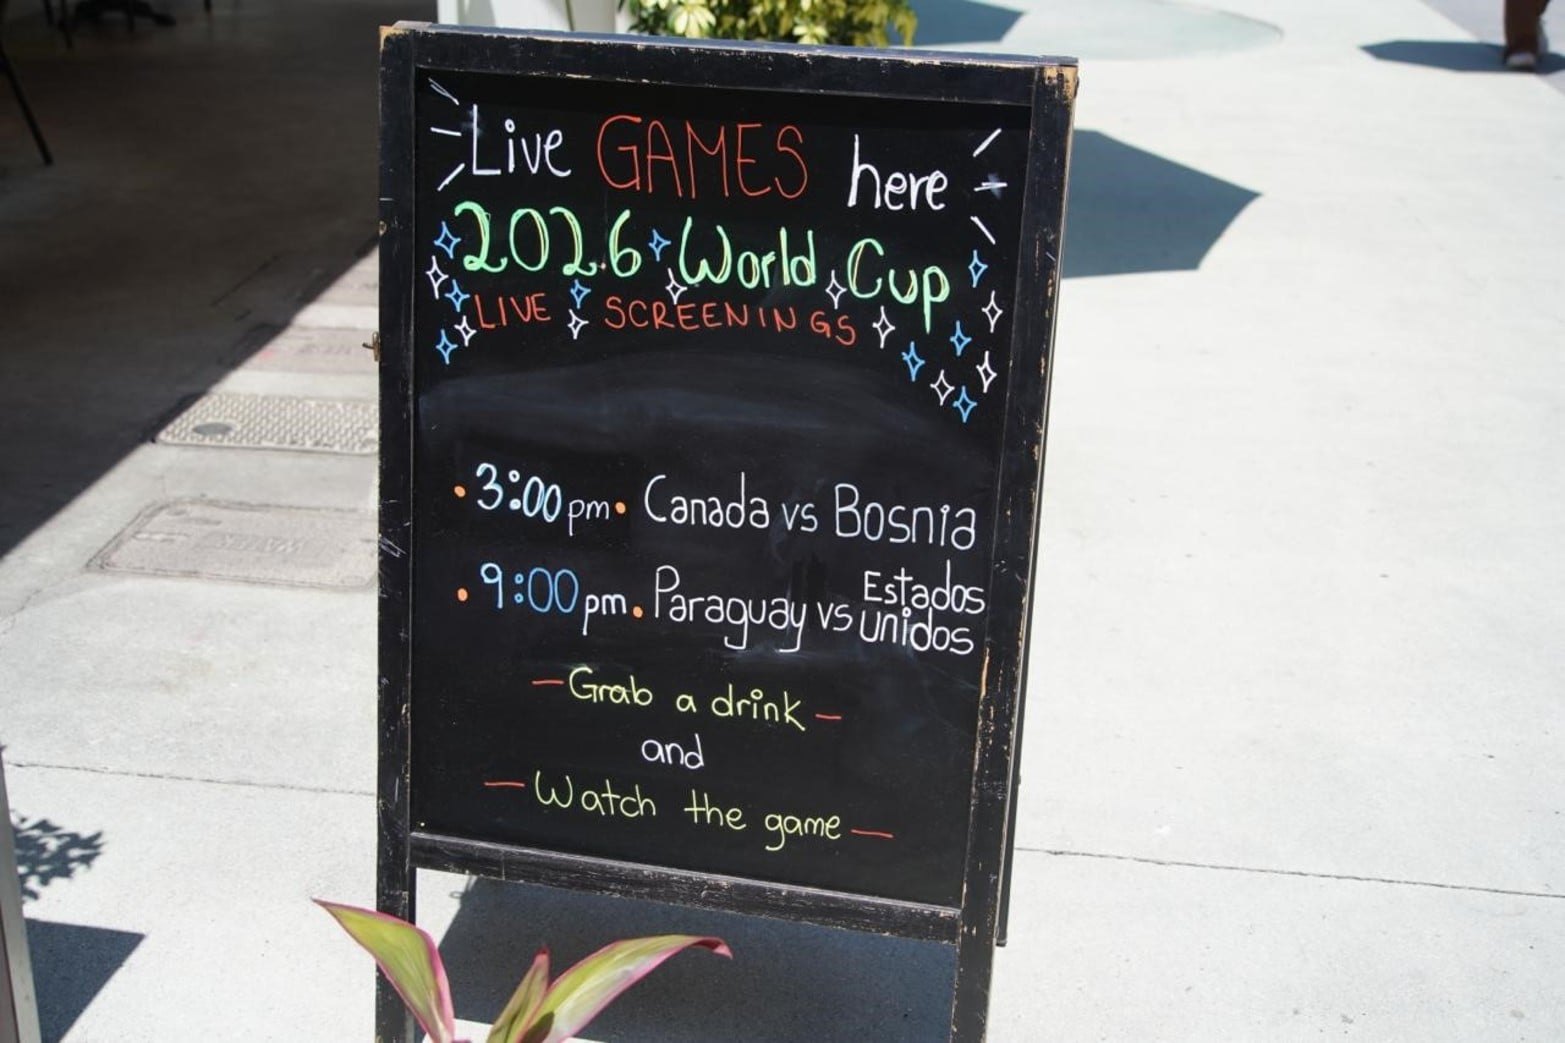 Live GAMES here
2026 World Cup
LIVE SCREENINGS
• 3:00 pm • Canada vs Bosnia
• 9:00 pm • Paraguay vs Estados
unidos
— Grab a drink —
and
— Watch the game —